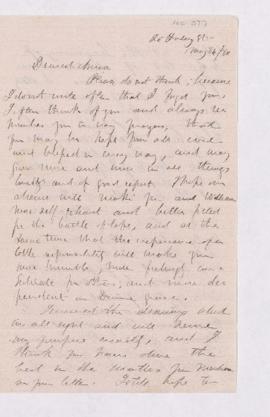 Dearest Anna
Please do not think, because
I do not write often that I forget you
I often think of you and always re
member you in my prayers, that
you may be kept from all evil
and blessed in every way, and may
grow more and more in all things
lovely and of good report. I hope our
absence will make you and William
more self reliant and better fitted
for the battle of life, and at the
same time that the experience of a
little responsibility will make you
more humble, more
and more de
pendent on Divine grace.
the drawing
all right and will
my purpose exactly, and I
think you have done the
best in the matter you mention
in your letter. I still hope to